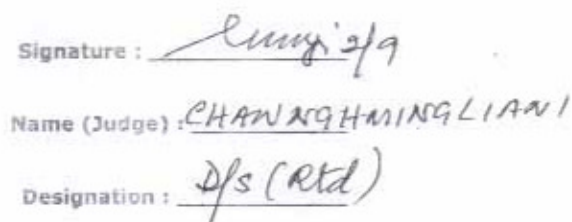 Signature : 2/9
Name (Judge) : CHAWNGHMINGLIANI
Designation : D/s (Rtd)